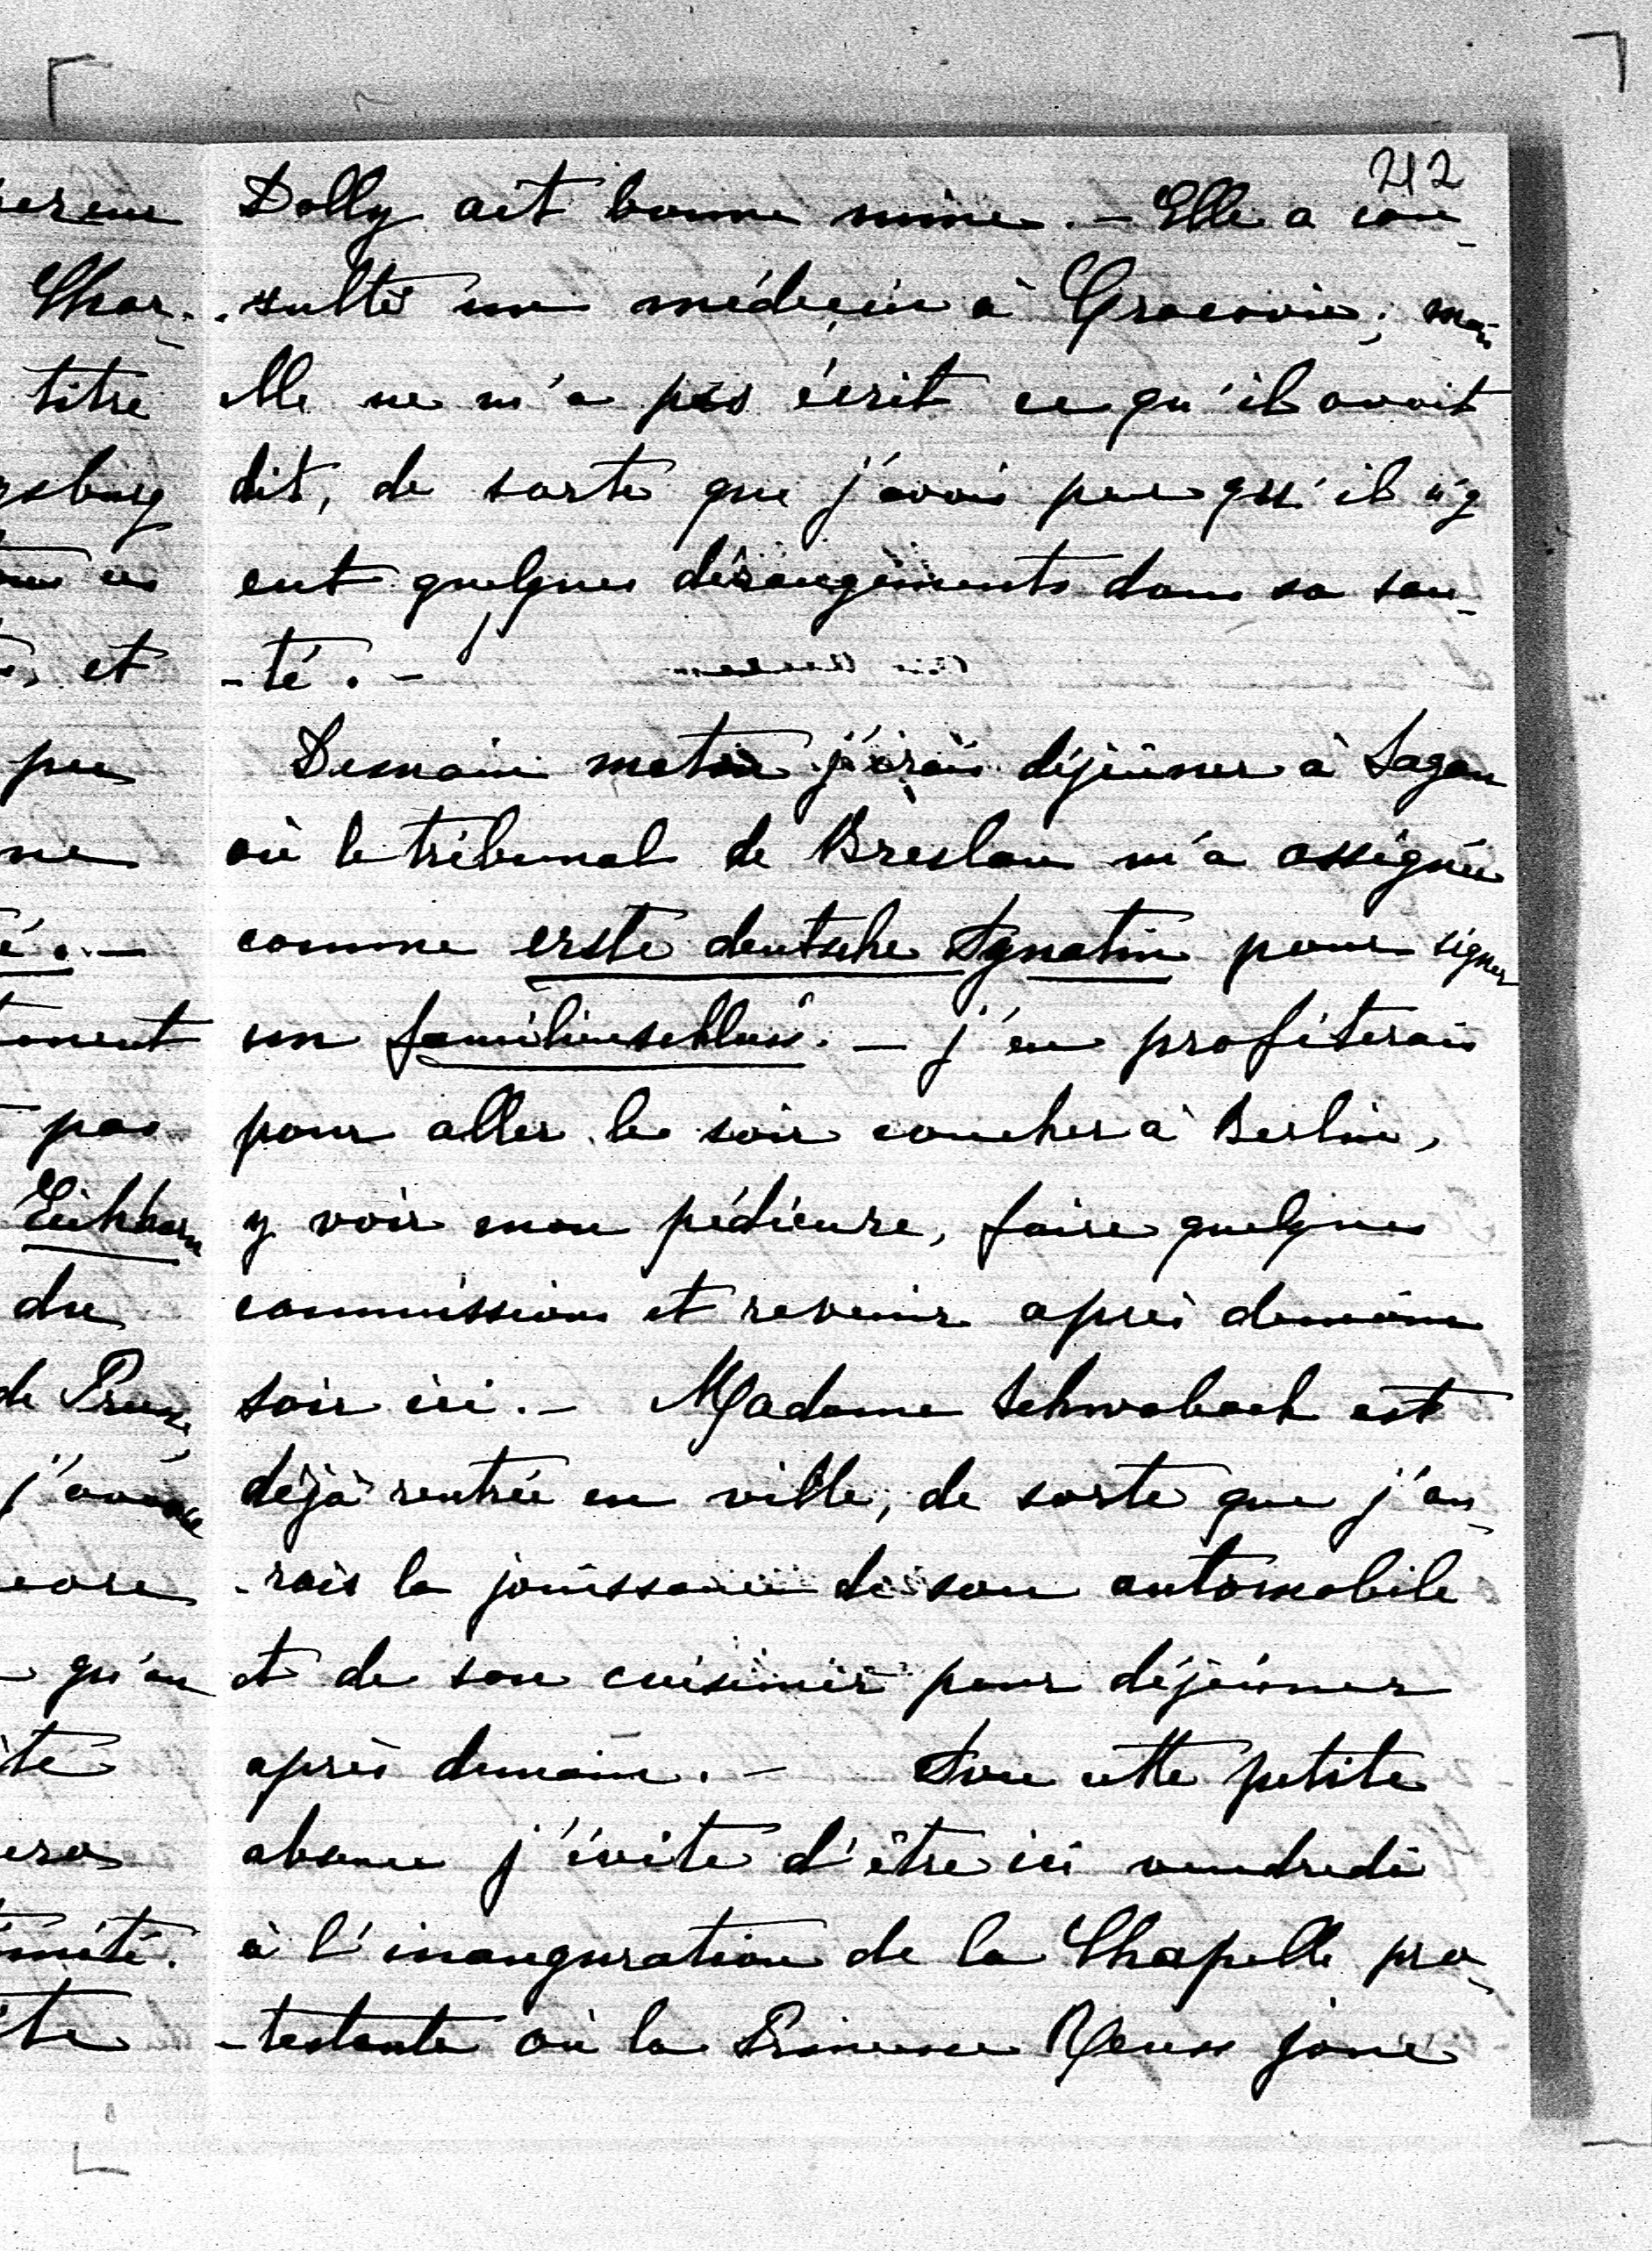 212
Dolly ait bonne mine. - Elle a con-
-sulté un médecin à Cracovie; mais
elle ne m'a pas écrit ce qu'il avait
dit, de sorte que j'avais peur qu'il n'y
eut quelques dérangements dans sa san-
-té. -
Demain matin j'irais déjeuner à Sagan
où le tribunal de Breslau m'a assignée
comme erste deutsche Agnatin pour signer
un familienschluss. - j'en profiterais
pour aller le soir coucher à Berlin,
y voir mon pédicure, faire quelques
commissions et revenir après demain
soir ici. - Madame Schwabach est
déjà rentrée en ville, de sorte que j'au-
-rais la jouissance de son automobile
et de son cuisinier pour déjeuner
après demain. - Par cette petite
absence j'évite d'être ici vendredi
à l'inauguration de la Chapelle pro-
-testante où la Princesse Reuss joue
titre
et
peu
pas
Eichhorn
du
de
qu'en